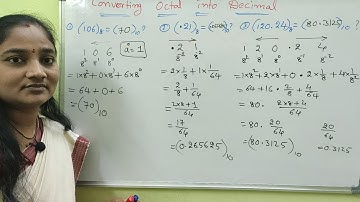 Converting Octal into Decimal
① (106)₈ = (70)₁₀?
1 0 6
8² 8¹ 8⁰
8⁰ = 1
= 1×8²+0×8¹+6×8⁰
= 64+0+6
= (70)₁₀
② (.21)₈ =
.2 1
8⁻¹ 8⁻²
= 2×1/8+1×1/64
= 2/8+1/64
= 2×8+1/64
= 17/64
= (0.265625)₁₀
③ (120.24)₈ = (80.3125)₁₀?
1 2 0 . 2 4
8² 8¹ 8⁰ 8⁻¹ 8⁻²
= 1×8²+2×8+0.2×1/8+4×1/8²
= 64+16.2/8+4/64
= 80.2×8+4/64
= 80.20/64
= (80.3125)₁₀
20/64
=0.3125